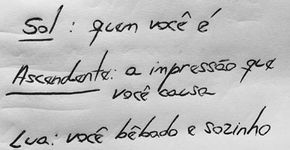 Sol: quem você é
Ascendente: a impressão que
você causa
Lua: você bêbado e sozinho